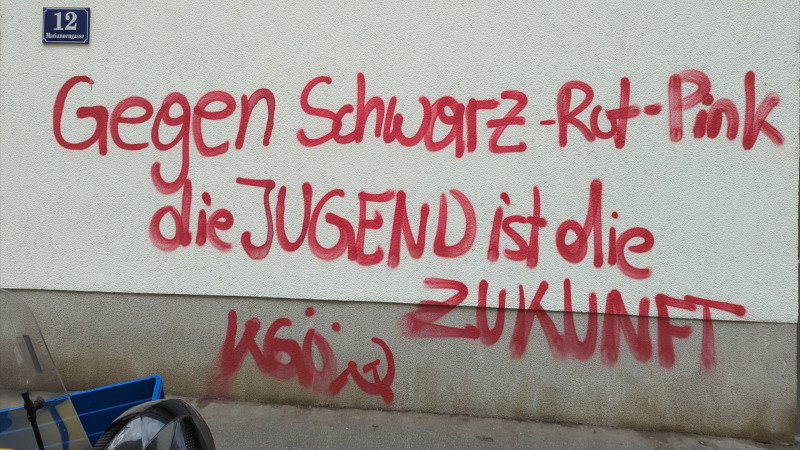 12
Mariannengasse
Gegen Schwarz-Rot-Pink
die JUGEND ist die
ZUKUNFT
KGÖ